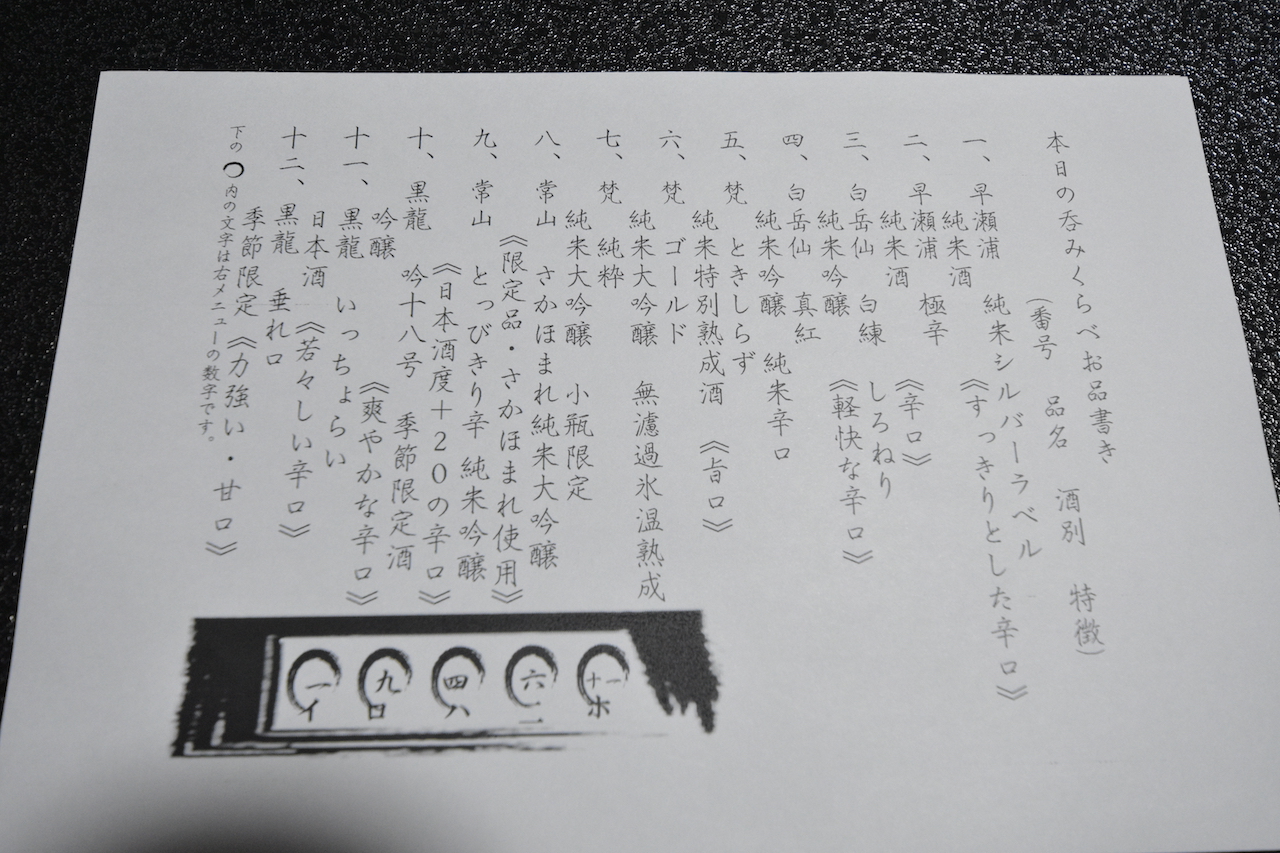 本日の呑みくらべお品書き
(番号 品名 酒別 特徴)
一、早瀬浦 純米シルバーラベル
純米酒 《すっきりとした辛口》
二、早瀬浦 極辛
純米酒 《辛口》
三、白岳仙 白練 しろねり
純米吟醸 《軽快な辛口》
四、白岳仙 真紅
純米吟醸 純米辛口
五、梵 ときしらず
純米特別熟成酒 《旨口》
六、梵 ゴールド
純米大吟醸 無濾過氷温熟成
七、梵 純粋
純米大吟醸 小瓶限定
八、常山 さかほまれ純米大吟醸
《限定品・さかほまれ使用》
九、常山 とっびきり辛 純米吟醸
《日本酒度+20の辛口》
十、黒龍 吟十八号 季節限定酒
吟醸 《爽やかな辛口》
十一、黒龍 いっちょらい
日本酒 《若々しい辛口》
十二、黒龍 垂れ口
季節限定 《力強い・甘口》
下の〇内の文字は右メニューの数字です。
十一 ホ
六 ニ
四 ハ
九 ロ
一 イ